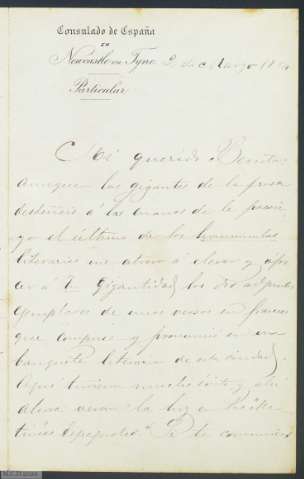 Consulado de España
EN
Newcastle on Tyne 2 de Marzo 18
Particular
Mi querido Benito:
aunque los gigantes de la prosa
desdeñeis á los enanos de la poesia,
yo el último de los
literarios me atrevo á elevar y ofre
cer á Gigantidad los dos adjuntos
ejemplares de unos versos en frances
que compuse y pronuncié en un
banquete literario de esta ciudad.
Aquí tuvieron mucho éxito y ahí
ahora veran la luz en
Españoles. De la comunidad